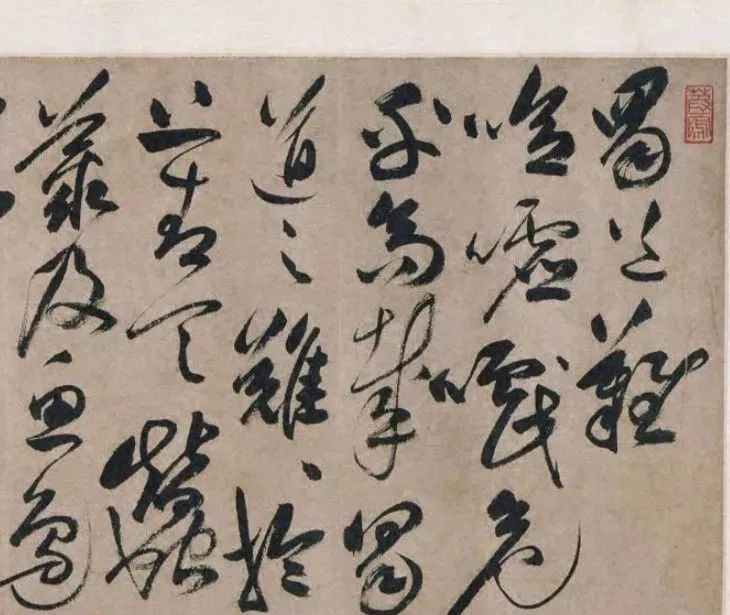 蜀道難
噫噓嚱危
乎高哉蜀
道之難〻於
上青天蠶
叢及魚鳧